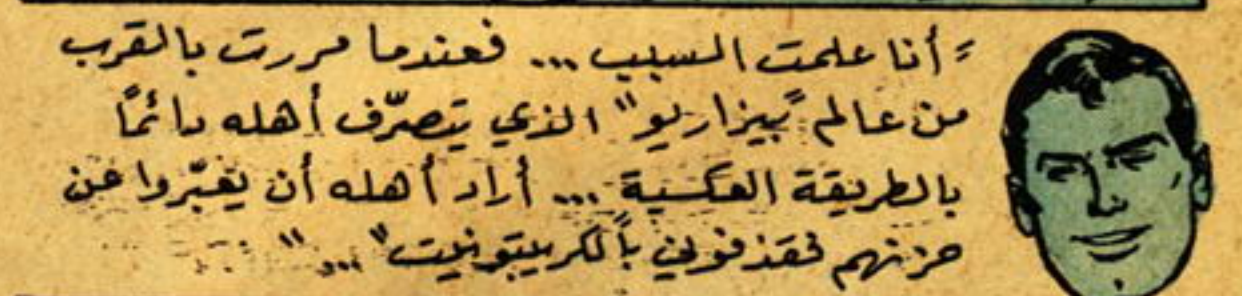 "أنا علمت السبب ... فعندما مررت بالقرب
من عالم "بيزاريو" الذي يتصرّف أهله دائمًا
بالطريقة العكسية ... أراد أهله أن يعبّروا عن
حزنهم فقذفوني بالكريبتونيت" ..."